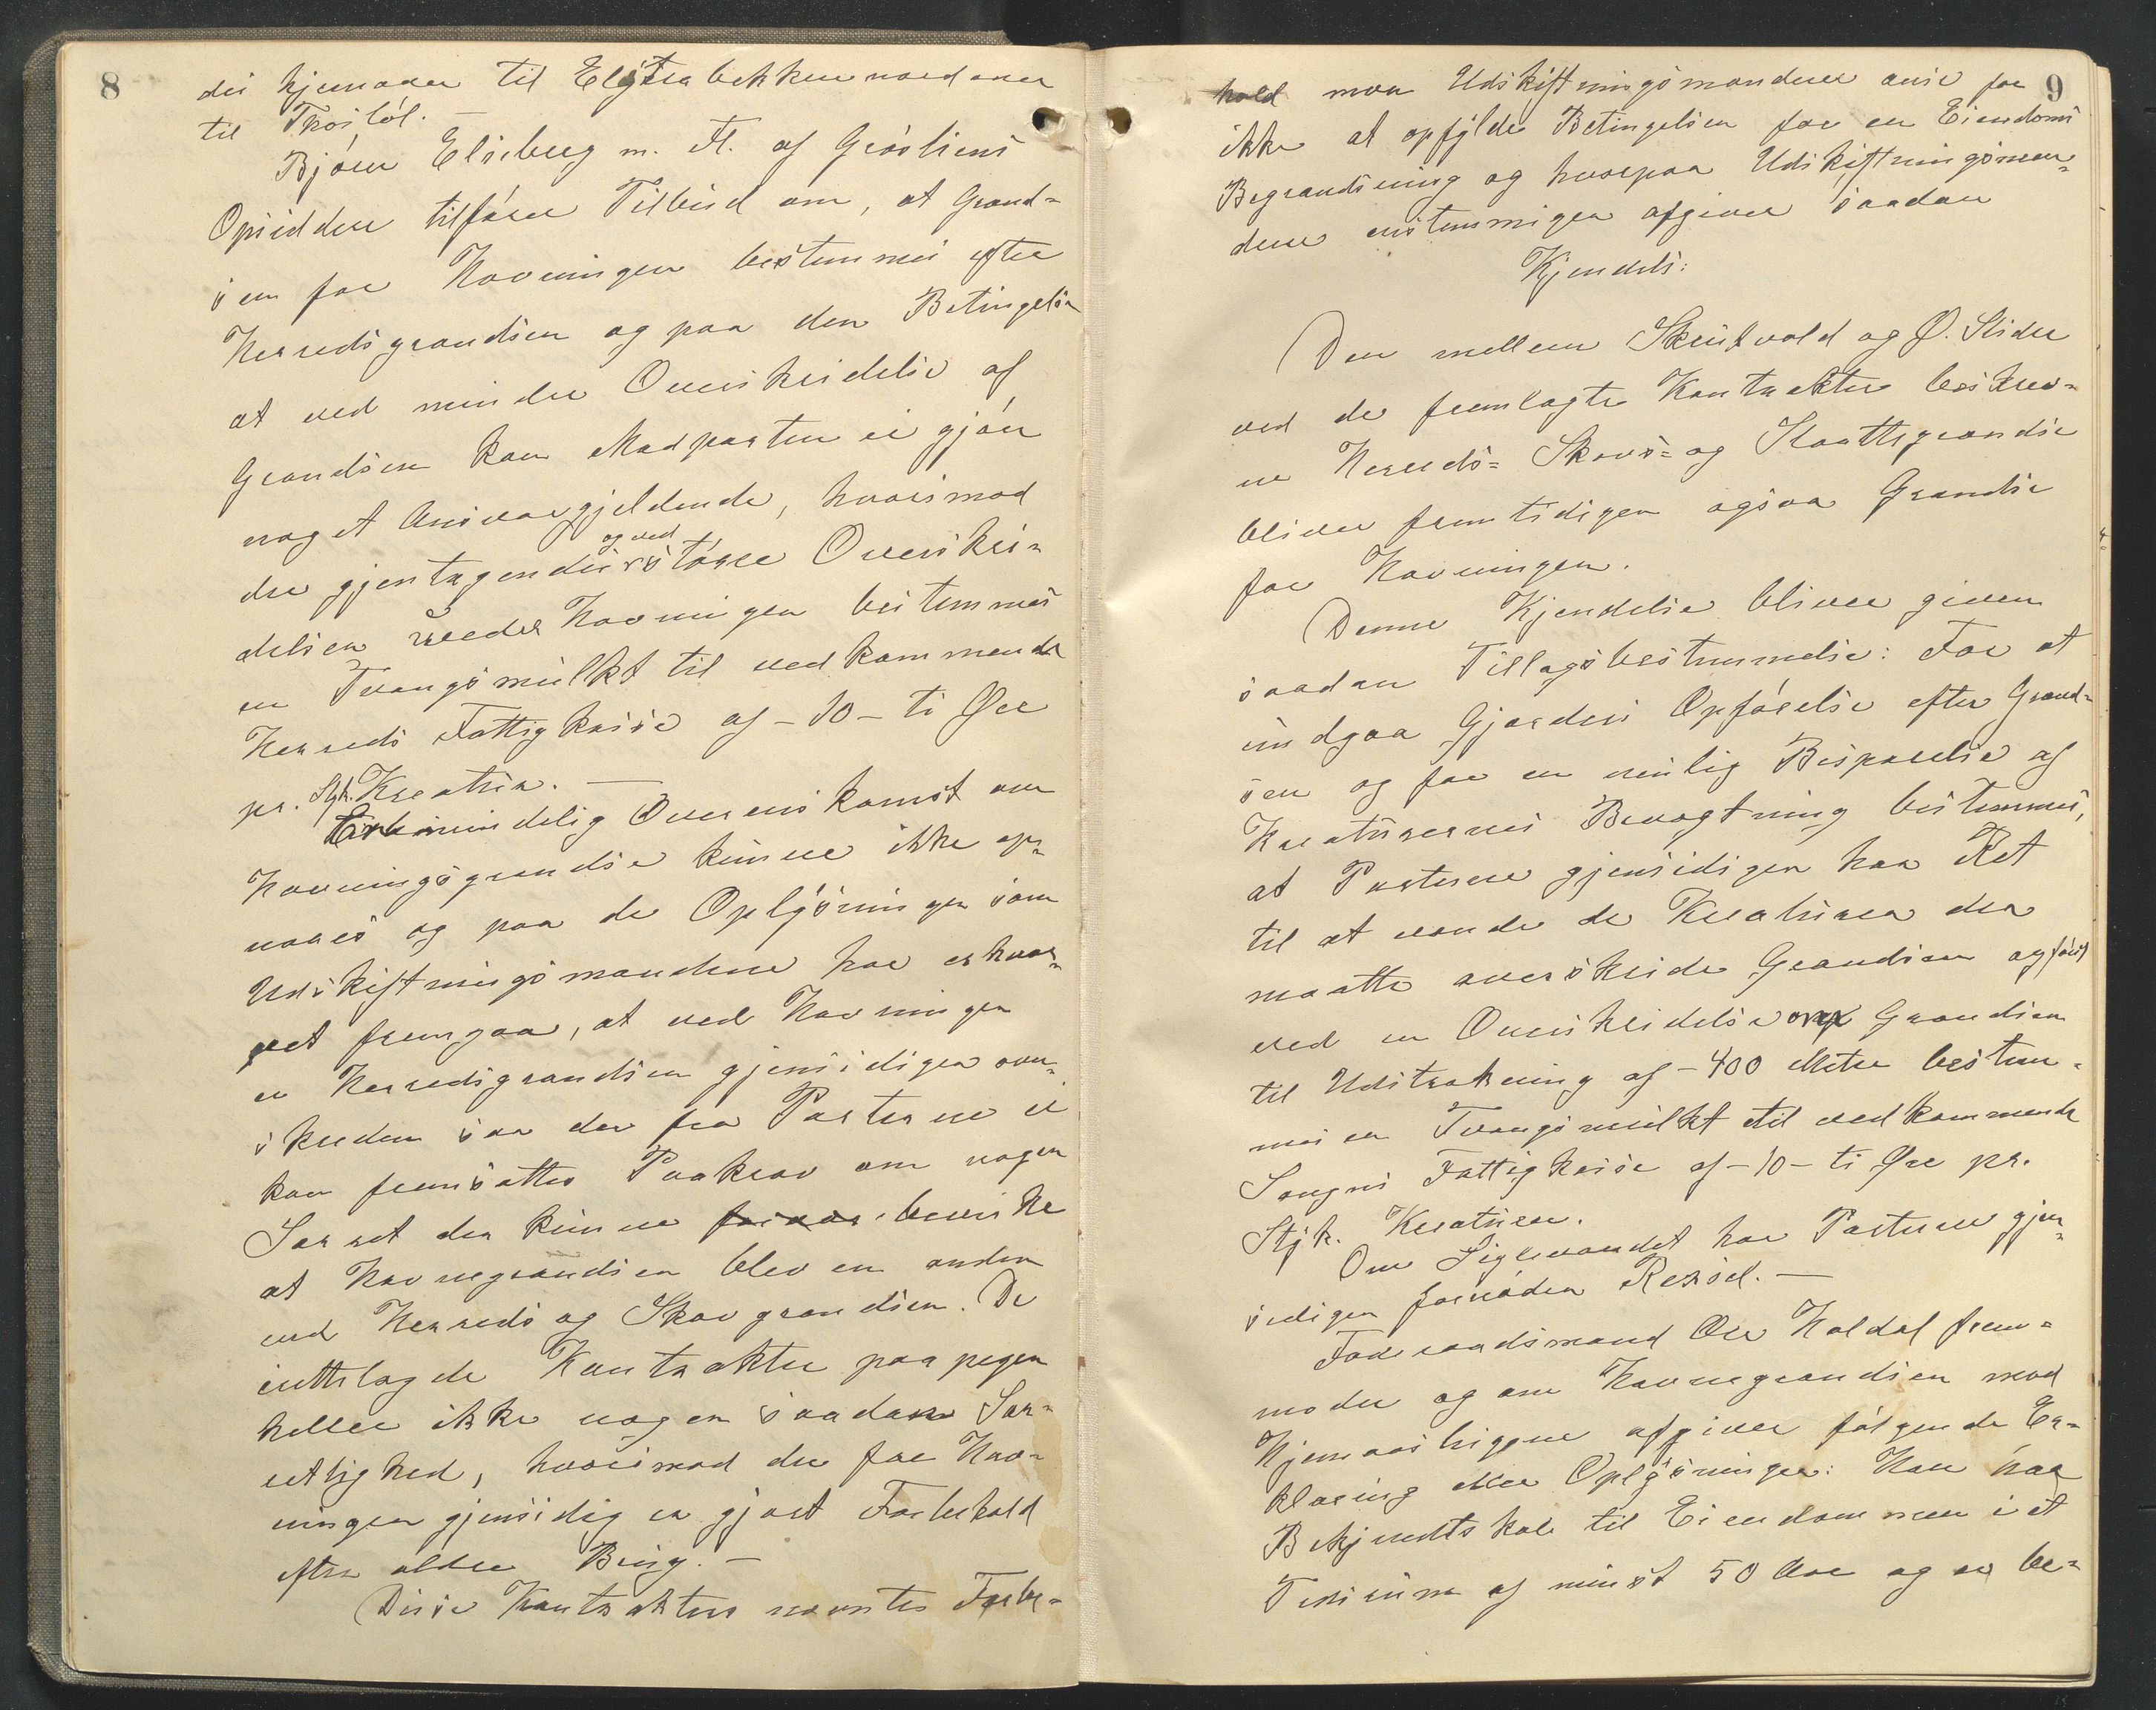 8
der hjemover til Elgstabekken nordover
til Frosjøl. —
Bjørn Elsiberg m. Fl. af Gråsliens
Opsiddere tilfører Tilbud om, at Grænd-
sen for Havningen bestemmes efter
Herredsgrændsen og paa den Betingelse
at ved mindre Overskridelse af
Grændsen kan Modparten ei gjøre
noget Ansvar gjeldende, hvorimod
der gjentagende og ved større Overskri-
delsen under Havningen bestemmes
en Tvangsmulkt til vedkommende
Herreds Fattigkasse af - 10 - ti Øre
pr. Stk. Kreatur. —
En mindelig Overenskomst om
Havningsgrændse kunne ikke op-
naaes og paa de Oplysninger som
Udskiftningsmændene har erhver-
vet fremgaar, at ved Havningen
er Herredsgrændsen gjensidigen over-
skreden saa der fra Parterne ei
kan fremsættes Paakrav om nogen
Særret der kunne bevirke
at Havnegrændsen blev en anden
end Herreds og Skovgrændsen. De
indtslagde Kontrakter paapeger
heller ikke nogen saadan Sær-
retlighed, hvorimod der for Hav-
ningen gjensidig er gjort Forbehold
efter ældre Brug. —
Disse Kontrakters nævnte Forbe-
9
hold maa Udskiftningsmændene anse for
ikke at opfylde Betingelsen for en Eiendoms
Begrændsning og hvorpaa Udskiftningsmæn-
dene enstemmigen afgiver saadan
Kjendels:
Den mellem Skrutvold og Ø. Slidre
ved de fremlagte Kontrakter beskrev-
ne Herreds- Skovs- og Slaattegrændse
bliver fremtidigen ogsaa Grændse
for Havningen.
Denne Kjendelse bliver given
saadan Tillægsbestemmelse: For at
undgaa Gjærders Opførelse efter Grænd-
sen og for en rimlig Besparelse af
Kreaturernes Bevogtning bestemmes,
at Parterne gjensidigen har Ret
til at vende de Kreaturer der
maatte overskride Grændsen og først
ved en Overskridelse over Grændsen
til Udstrækning af - 400 Meter bestem-
mes en Tvangsmulkt til vedkommende
Sogns Fattigkasse af - 10 - ti Øre pr.
Styk. Kreaturer.
Om Siglevandet har Parterne gjen-
sidigen fornøden Rensel. —
Foderaadsmand Ole Høldal frem-
møder og om Havnegrændsen mod
Hjemaasbiggene afgiver følgende Er-
klæring eller Oplysninger: Han har
Bekjendtskab til Eiendommen i et
Tidsrum af minst 50 Aar og er be-